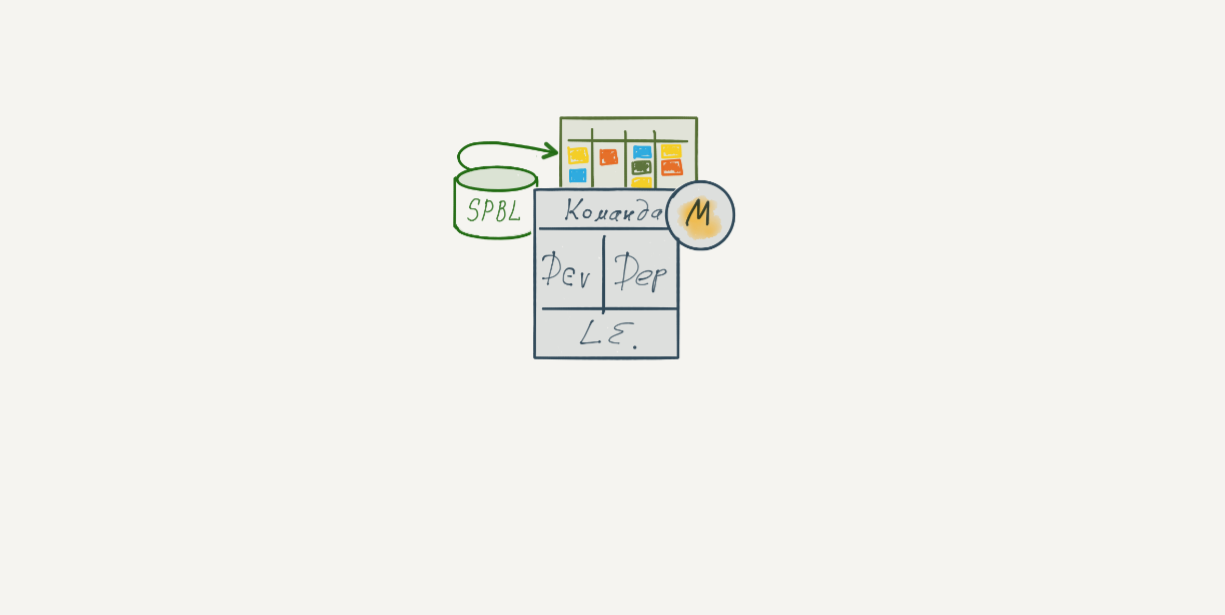 SPBL
Команда
M
Dev
Dep
L.E.